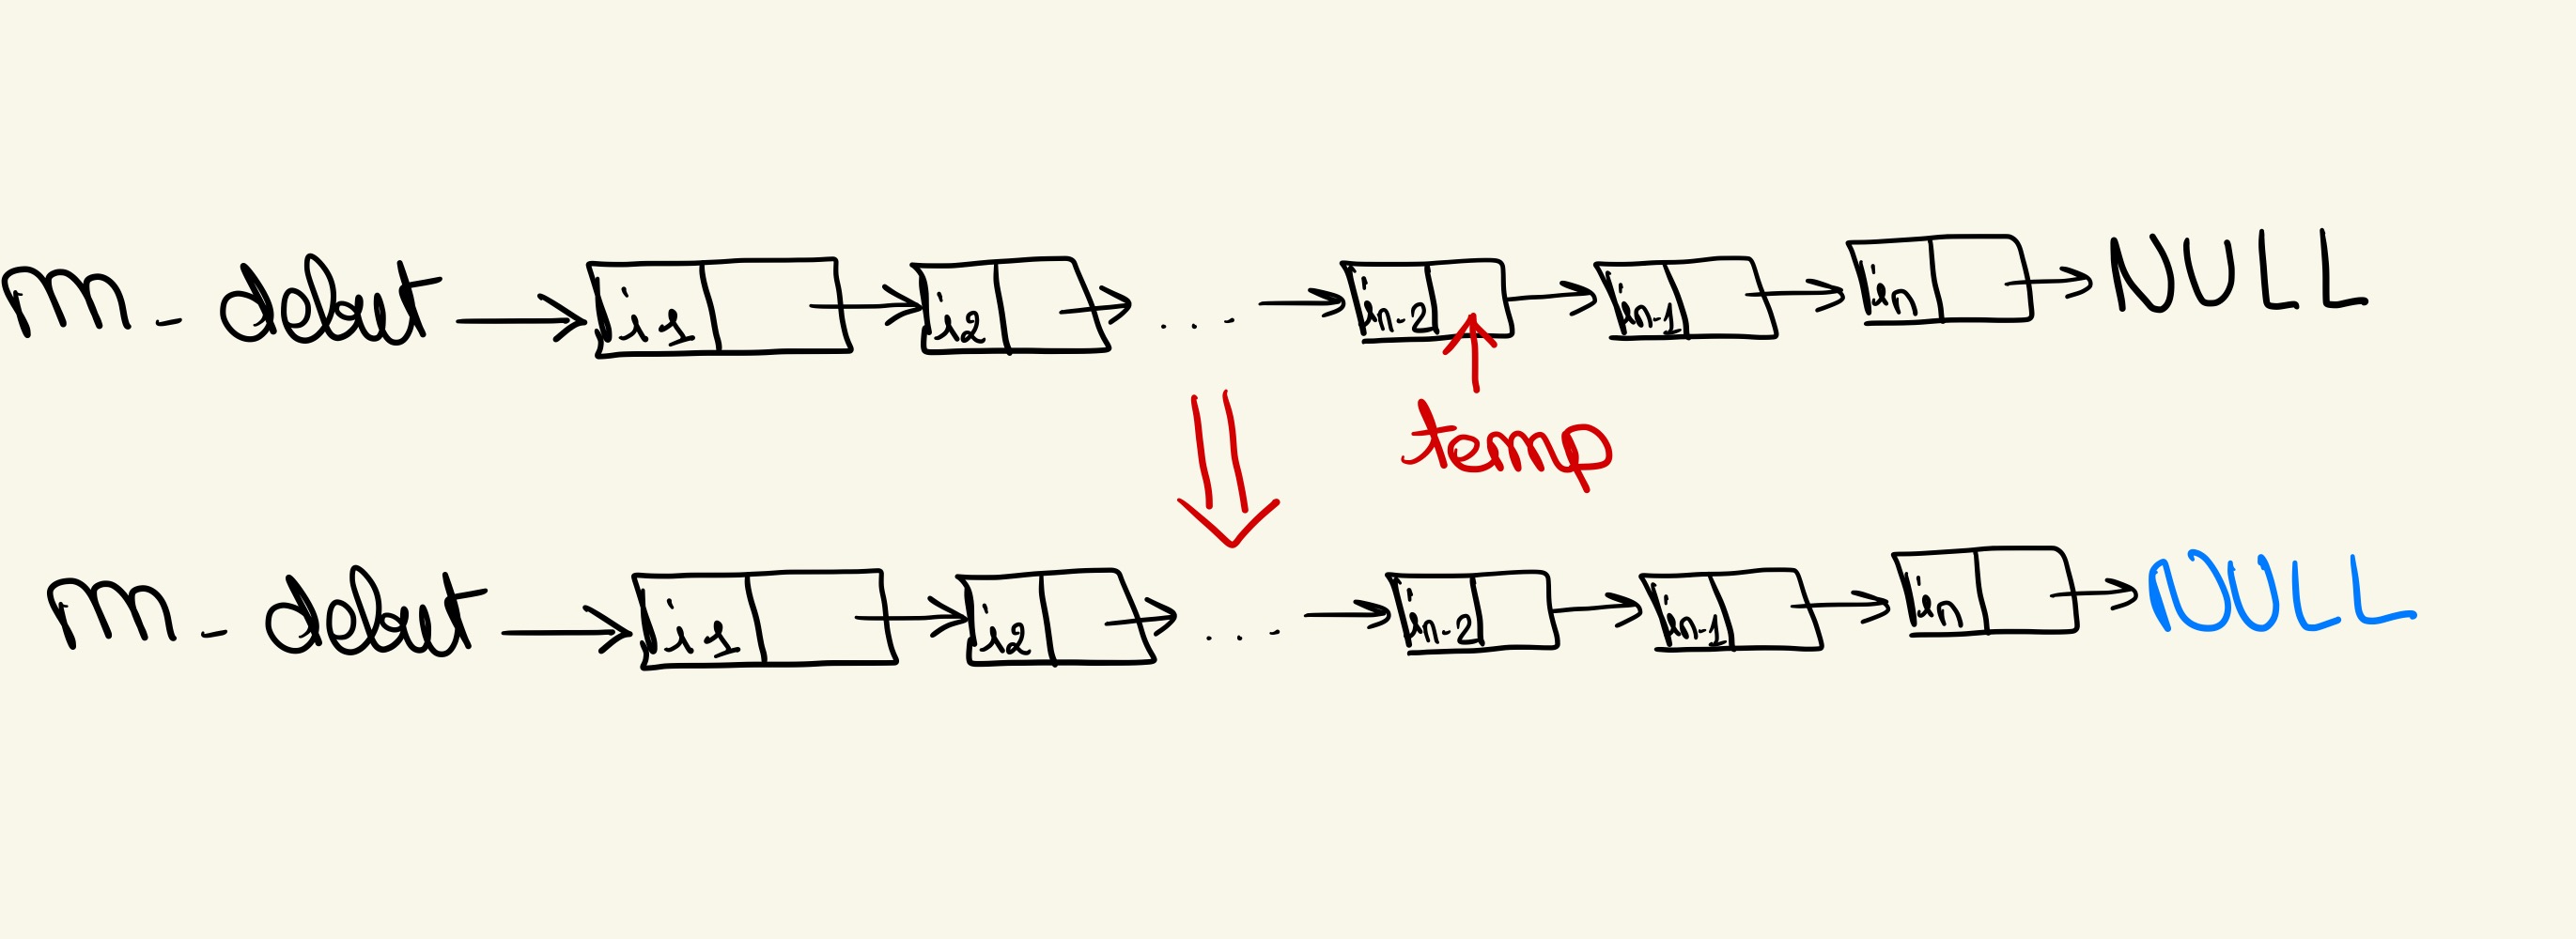 m_debut i1 i2 ... in-2 in-1 in NULL
temp
m_debut i1 i2 ... in-2 in-1 in NULL